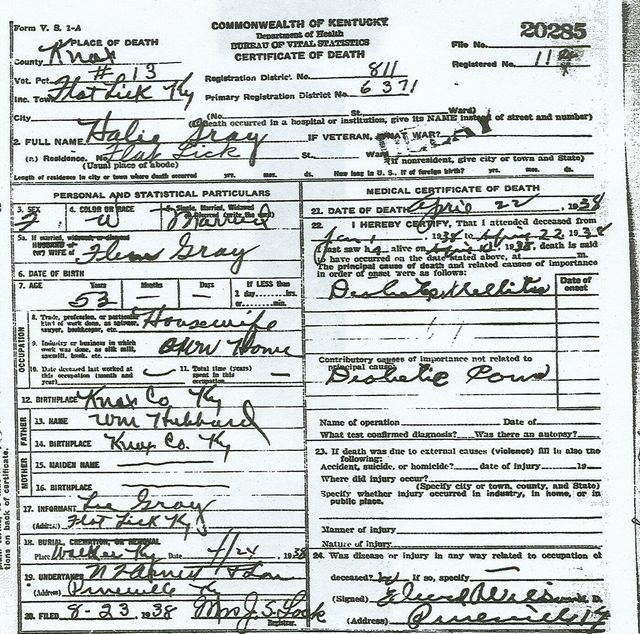 Form V. S. 1-A
COMMONWEALTH OF KENTUCKY
Department of Health
BUREAU OF VITAL STATISTICS
CERTIFICATE OF DEATH
20285
File No.
Registered No. 11
1. PLACE OF DEATH
County Knox
Vot. Pct. # 13
Inc. Town Flat Lick Ky
Registration District No. 811
Primary Registration District No. 6371
City (No. St. Ward)
(If death occurred in a hospital or institution, give its NAME instead of street and number)
2. FULL NAME Halie Gray IF VETERAN, WHAT WAR?
DELAY
(a) Residence. No. Flat Lick St. Ward
(Usual place of abode) (If nonresident, give city or town and State)
Length of residence in city or town where death occurred yrs. mos. ds. How long in U. S., if of foreign birth? yrs. mos. ds.
PERSONAL AND STATISTICAL PARTICULARS
3. SEX F 4. COLOR OR RACE W 5. Single, Married, Widowed, or Divorced (write the word) Married
5a. If married, widowed, or divorced
HUSBAND of
(or) WIFE of Gray
6. DATE OF BIRTH
7. AGE Years 53 Months — Days — If LESS than
1 day, hrs.
or min.
OCCUPATION
8. Trade, profession, or particular
kind of work done, as spinner,
sawyer, bookkeeper, etc. Housewife
9. Industry or business in which
work was done, as silk mill,
sawmill, bank, etc. Own Home
10. Date deceased last worked at
this occupation (month and
year) —
11. Total time (years)
spent in this
occupation —
12. BIRTHPLACE Knox Co. Ky
FATHER
13. NAME Wm Hubbard
14. BIRTHPLACE Knox Co. Ky
MOTHER
15. MAIDEN NAME —
16. BIRTHPLACE —
17. INFORMANT Lee Gray
(Address) Flat Lick Ky
18. BURIAL, CREMATION, OR REMOVAL
Place Walker Ky Date 4/24, 1938
19. UNDERTAKER
(Address) Pineville Ky
20. FILED 8-23, 1938 Mrs J. S. Lock
Registrar.
MEDICAL CERTIFICATE OF DEATH
21. DATE OF DEATH April 22, 1938
22. I HEREBY CERTIFY, That I attended deceased from
Jan 1 1938 to April 22 1938
I last saw h alive on April 1938, death is said
to have occurred on the date stated above, at m.
The principal cause of death and related causes of importance
in order of onset were as follows:
Date of
onset
Diabetes Mellitus
Contributory causes of importance not related to
principal cause:
Diabetic Coma
Name of operation Date of
What test confirmed diagnosis? Was there an autopsy?
23. If death was due to external causes (violence) fill in also the
following:
Accident, suicide, or homicide? date of injury 19
Where did injury occur?
(Specify city or town, county, and State)
Specify whether injury occurred in industry, in home, or in
public place.
Manner of injury
Nature of injury
24. Was disease or injury in any way related to occupation of
deceased? If so, specify —
(Signed) Edward Wilson M. D.
(Address) Pineville Ky
tions on back of certificate.